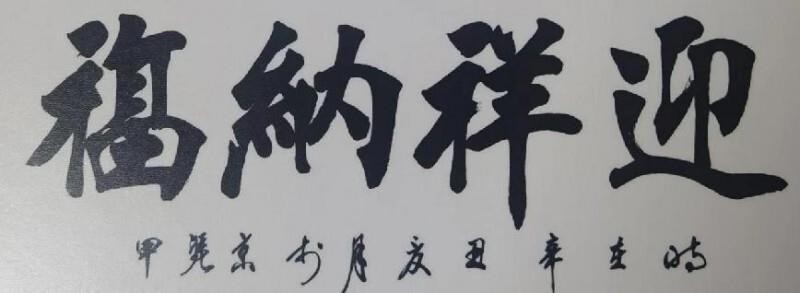 迎祥納福
時在辛丑夏月於京